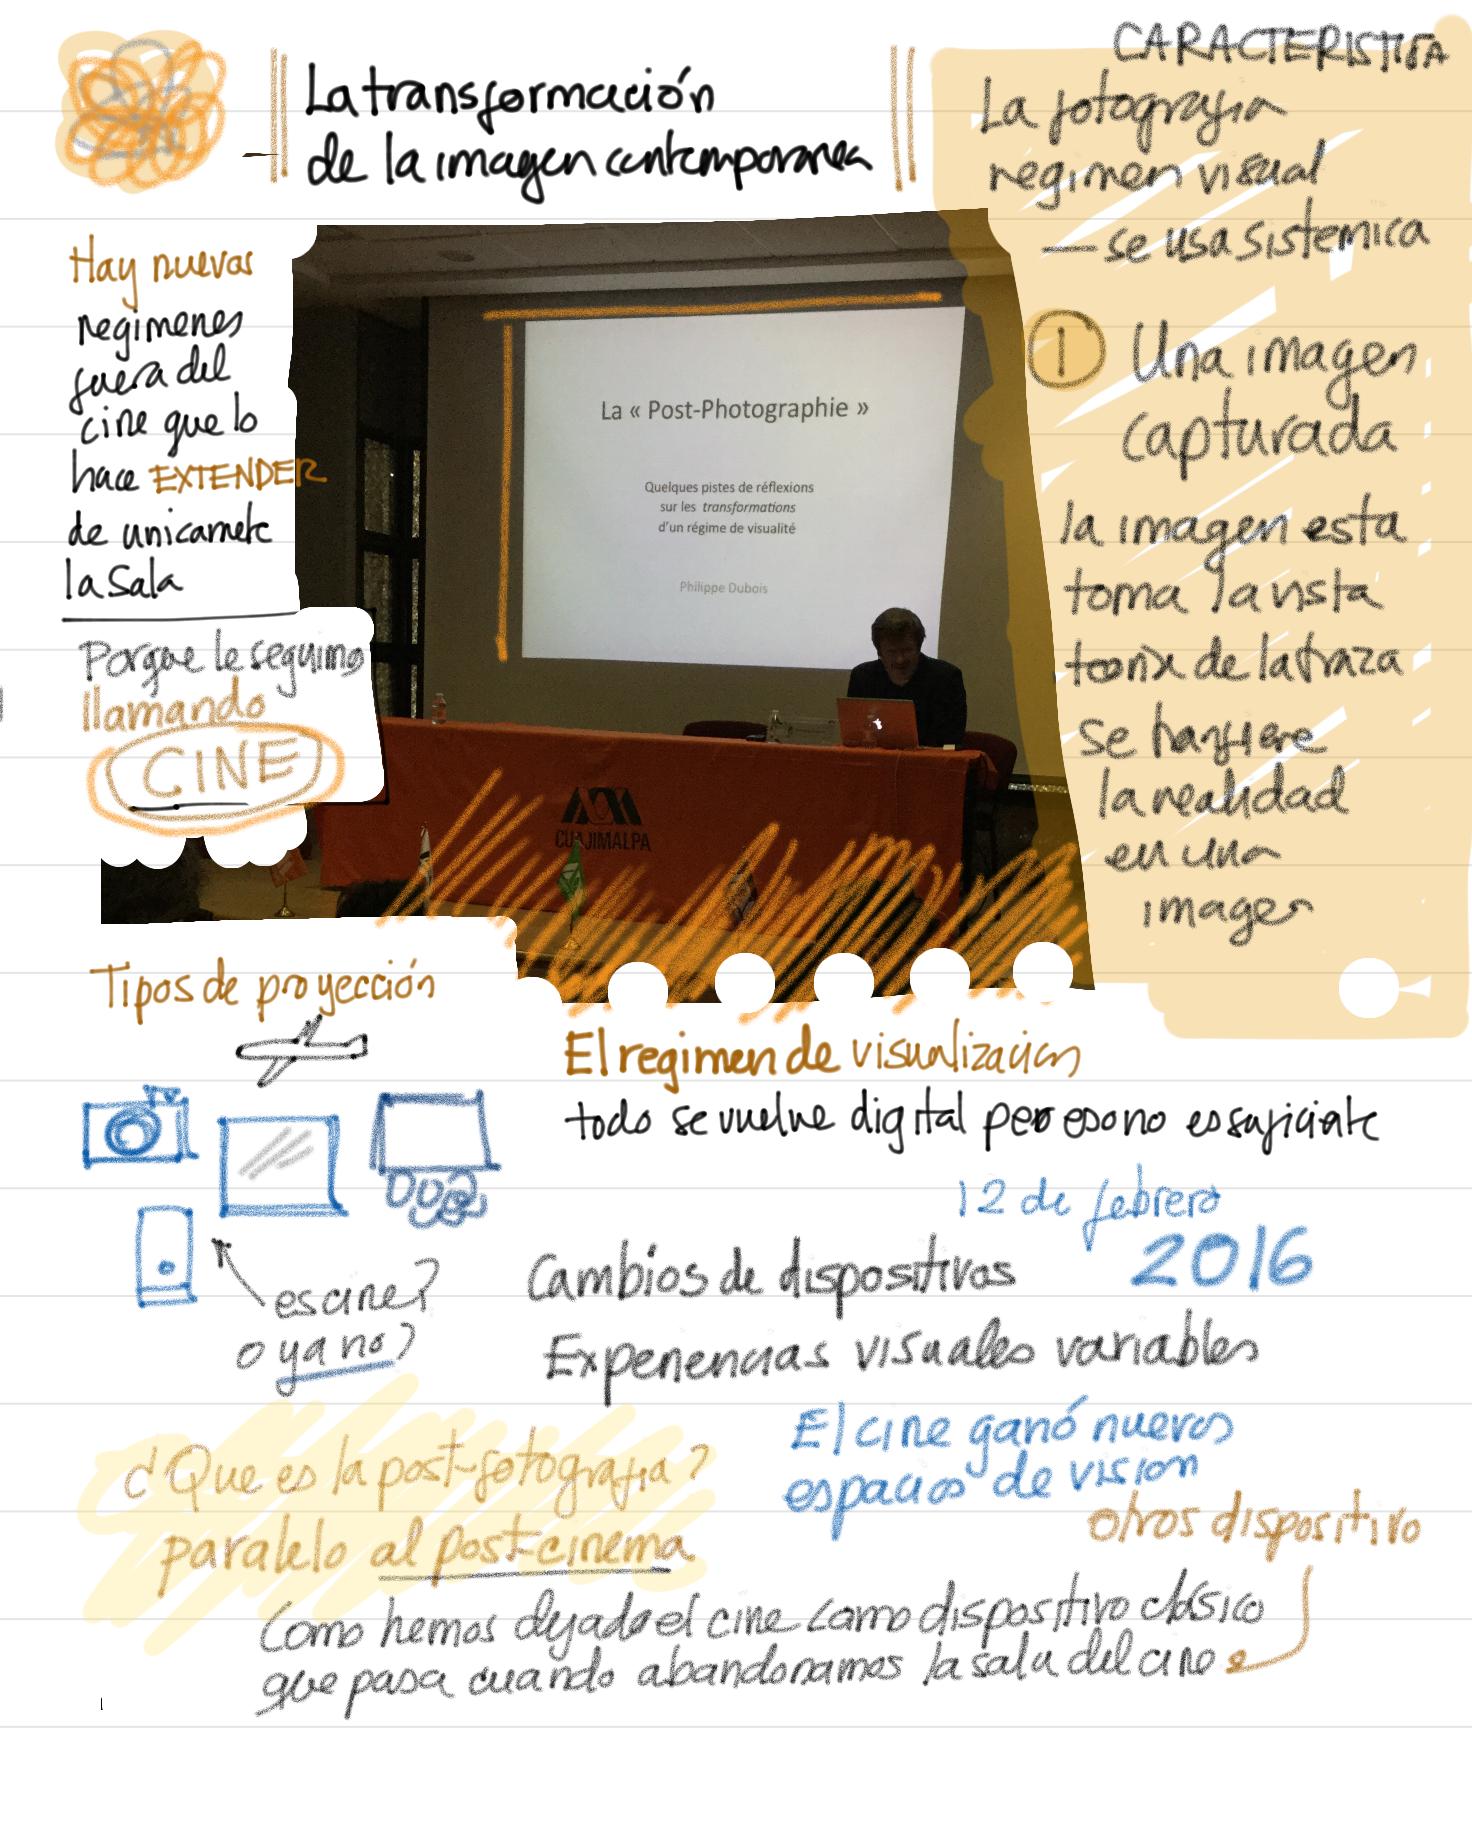 La transformación
de la imagen contemporanea
CARACTERISTICA
La fotografia
regimen visual
— se usa sistemica
① Una imagen
capturada
la imagen esta
toma la vista
de la traza
se
la realidad
en una
imagen
Hay nuevos
regimenes
fuera del
cine que lo
hace EXTENDER
de unicamete
la Sala
Porque le seguimo
llamando
CINE
La « Post-Photographie »
Quelques pistes de réflexions
sur les transformations
d'un régime de visualité
Philippe Dubois
CUAJIMALPA
Tipos de proyección
es cine?
o ya no?
El regimen de visualizacion
todo se vuelve digital pero eso no es suficiente
12 de febrero
2016
Cambios de dispositivos
Experiencias visuales variables
El cine ganó nuevos
espacios de vision
otros dispositivo
¿Que es la post-fotografia?
paralelo al post-cinema
Como hemos dejado el cine como dispositivo clasico
que pasa cuando abandonamos la sala del cine